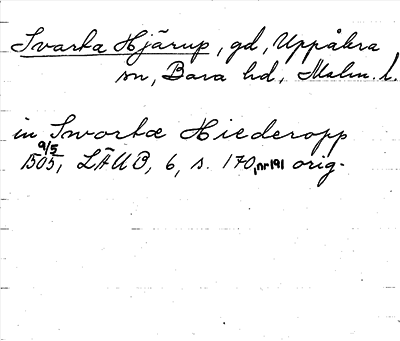 Svarta Hjärup, gd, Uppåkra
sn, Bara hd, Malm. l.
in Swortæ Hiederopp
9/5
1505, LÄUB, 6, s. 170, nr 191 orig.